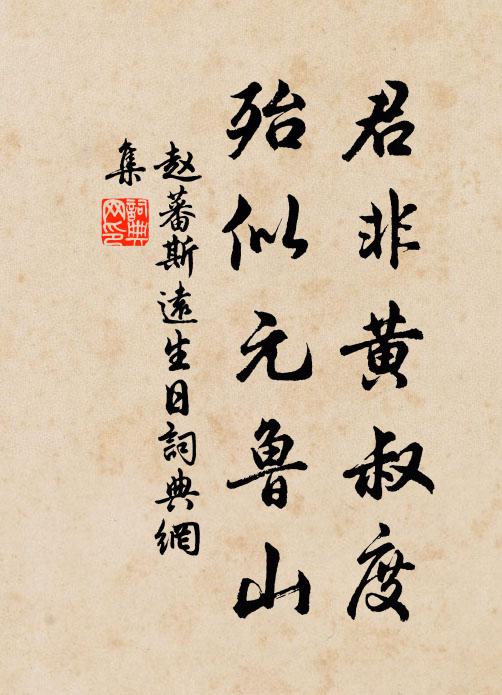 君非黄叔度
殆似元鲁山
赵蕃斯遠生日詞典網
集
詞典
网印